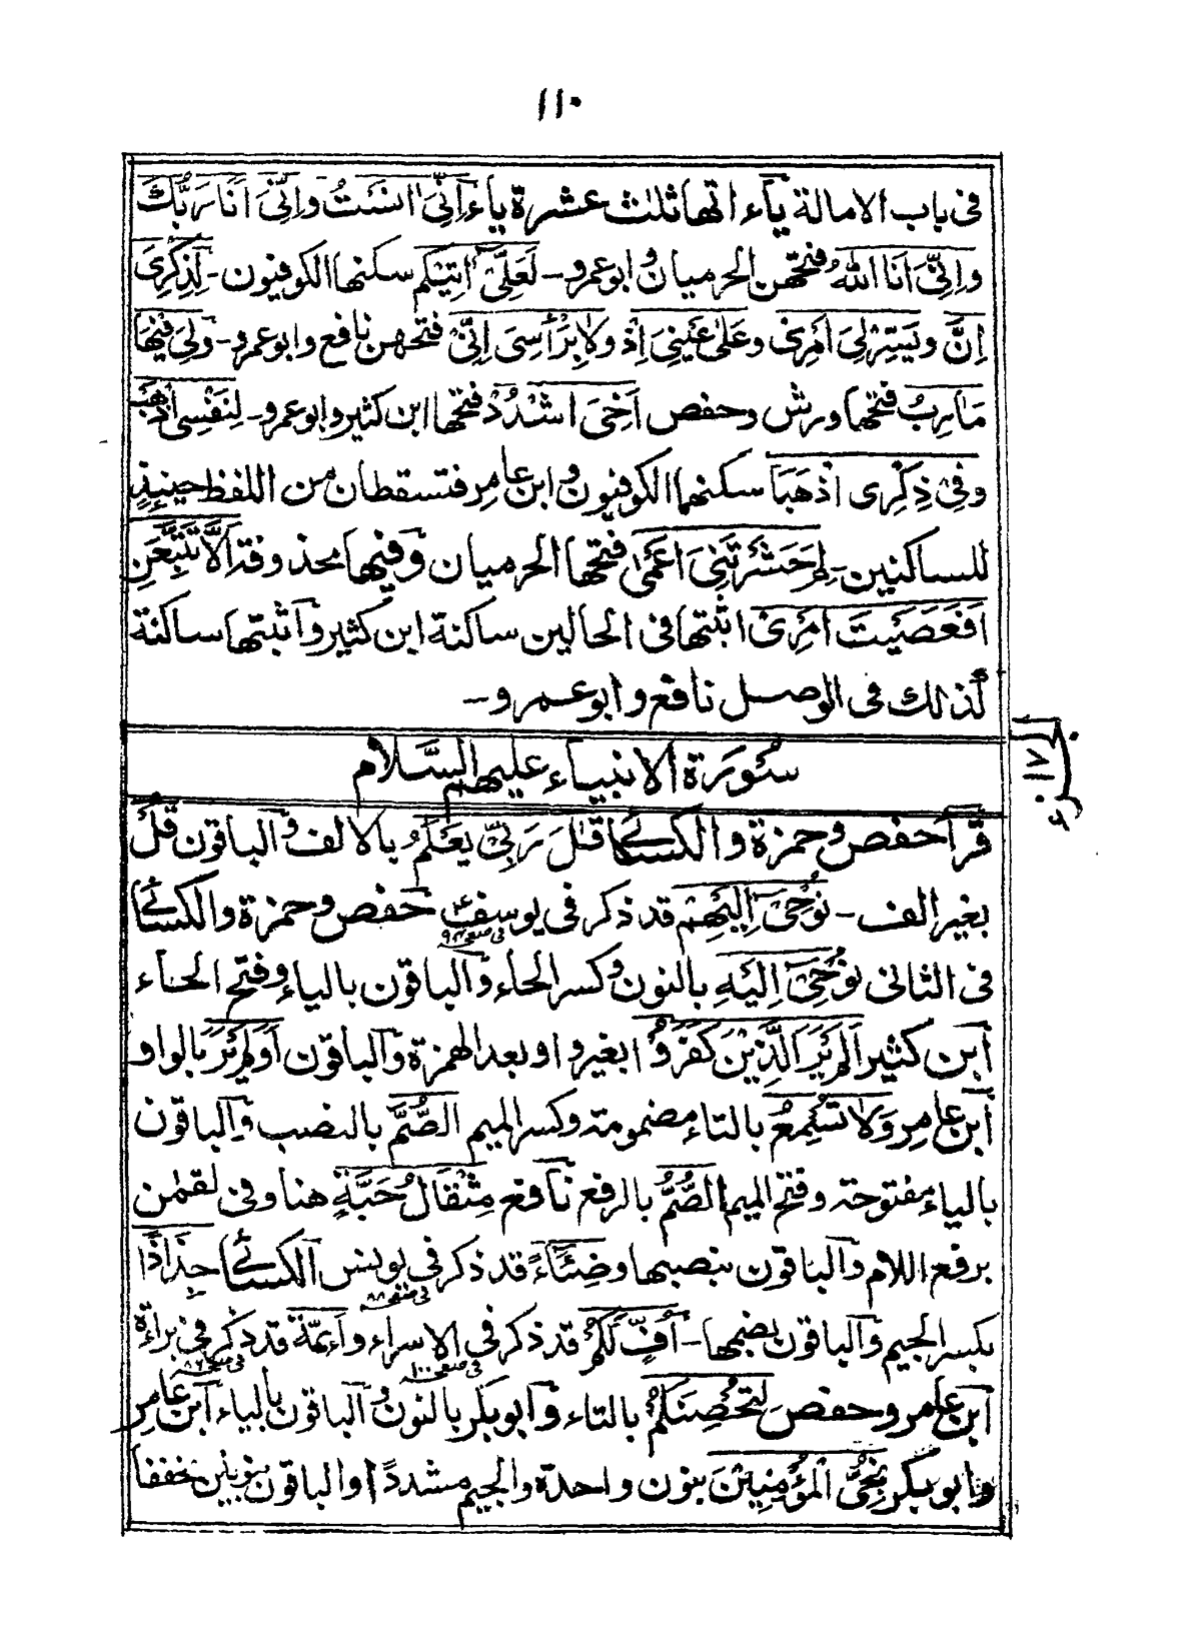 ١١٠
فى باب الامالة يآء اتها ثلث عشرة ياء اِنِّىَ اٰنَسْتُ وَاِنِّىَ اَنَا رَبُّكَ
وَاِنَّنِىَ اَنَا اللّٰهُ فتحهن الحرميان و ابو عمرو۔ لَعَلِّىَ اٰتِيْكُمْ سكنها الكوفيون۔ لِذِكْرِىَ
اِنَّ وَيَسِّرْلِىَ اَمْرِىْ وعَلٰى عَيْنِىَ اِذْ ولَا بِرَاْسِىَ اِنِّىْ فتحهن نافع و ابو عمرو۔ وَلِىَ فِيْهَا
مَاٰرِبُ فتحها ورش وحفص اَخِىَ اشْدُدْ فتحها ابن كثير و ابو عمرو۔ لِنَفْسِىَ اذْهَبْ
وَفِىْ ذِكْرِى اذْهَبَا سكنهما الكوفيون و ابن عامر فتسقطان من اللفظ حينئذٍ
للساكنين۔ لِمَ حَشَرْتَنِىَ اَعْمٰى فتحها الحرميان وَفيها محذوفة اَلَّا تَتَّبِعَنِ
اَفَعَصَيْتَ اَمْرِىْ اثبتها فى الحالين ساكنة ابن كثير وآثبتها ساكنة
كذلك فى الوصل نافع و ابو عمرو۔
سُوْرَة الانبياء عليهم السَّلام
قرأ حفص وحمزة والكسائى قٰلَ رَبِّىْ يَعْلَمُ بالالف وآلباقون قُلْ
بغير الف۔ نُوْحِىْٓ اِلَيْهِمْ قد ذكر فى يوسف حفص وحمزة والكسائى
فى صفحه ٩٣
فى الثانى نُوْحِىْٓ اِلَيْهِ بالنون وكسر الحاء وآلباقون بالياء وفتح الحاء
آبن كثير اَلَمْ يَرَ الَّذِيْنَ كَفَرُوْا بغير واو بعد الهمزة وآلباقون اَوَلَمْ يَرَ بالواو
آبن عامر وَلَا تُسْمِعُ بالتاء مضمومة وكسر الميم الصُّمَّ بالنصب وآلباقون
بالياء مفتوحة وفتح الميم الصُّمُّ بالرفع نآفع مِثْقَالُ حَبَّةٍ هنا وفى لقمٰن
برفع اللام وآلباقون بنصبها وضِئَآءً قد ذكر فى يونس آلكسائى جِذَاذًا
فى صفحه ٨٨
بكسر الجيم وآلباقون بضمها۔ اُفٍّ لَّكُمْ قد ذكر فى الاسراء وأَئِمَّةً قد ذكر فى براءة
فى صفحه ١٠٠
فى صفحه ٨٦
آبن عامر وحفص لِتُحْصِنَكُمْ بالتاء وآبو بكر بالنون وآلباقون بالياء آبن عامر
وابو بكر نُجِّى الْمُؤْمِنِيْنَ بنون واحدة والجيم مشددًا والباقون بنونين مخففا
١٧